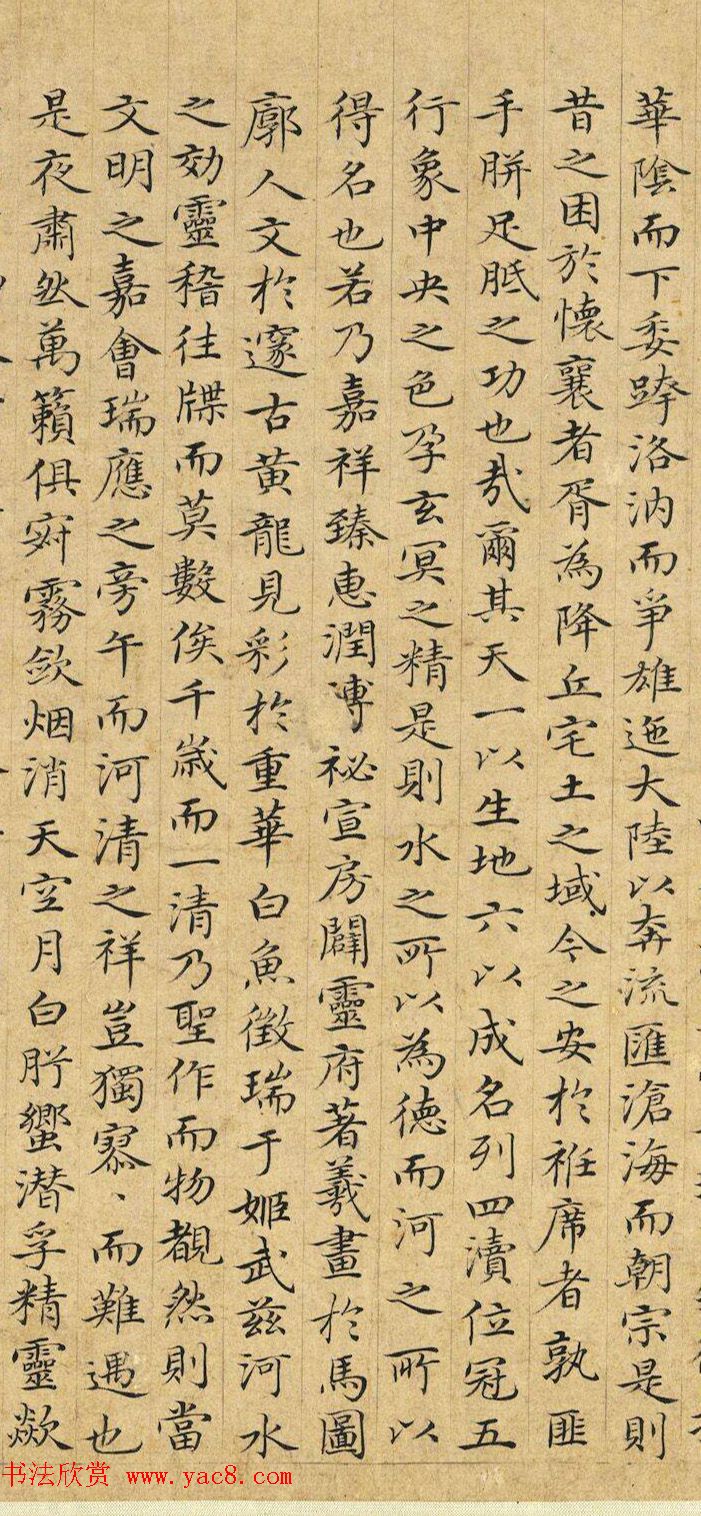 華陰而下委踤洛汭而爭雄迤大陸以奔流匯滄海而朝宗是則
昔之困於懷襄者胥為降丘宅土之域今之安於袵席者孰匪
手胼足胝之功也哉爾其天一以生地六以成名列四瀆位冠五
行象中央之色孕玄冥之精是則水之所以為德而河之所以
得名也若乃嘉祥臻惠潤溥祕宣房闢靈府著羲畫於馬圖
廓人文於邃古黃龍見彩於重華白魚徵瑞于姬武茲河水
之効靈稽往牒而莫數俟千歲而一清乃聖作而物覩然則當
文明之嘉會瑞應之旁午而河清之祥豈獨寥、而難遇也
是夜肅然萬籟俱寂霧斂烟消天空月白肸蠁潜孚精靈歘
书法欣赏 www.yac8.com